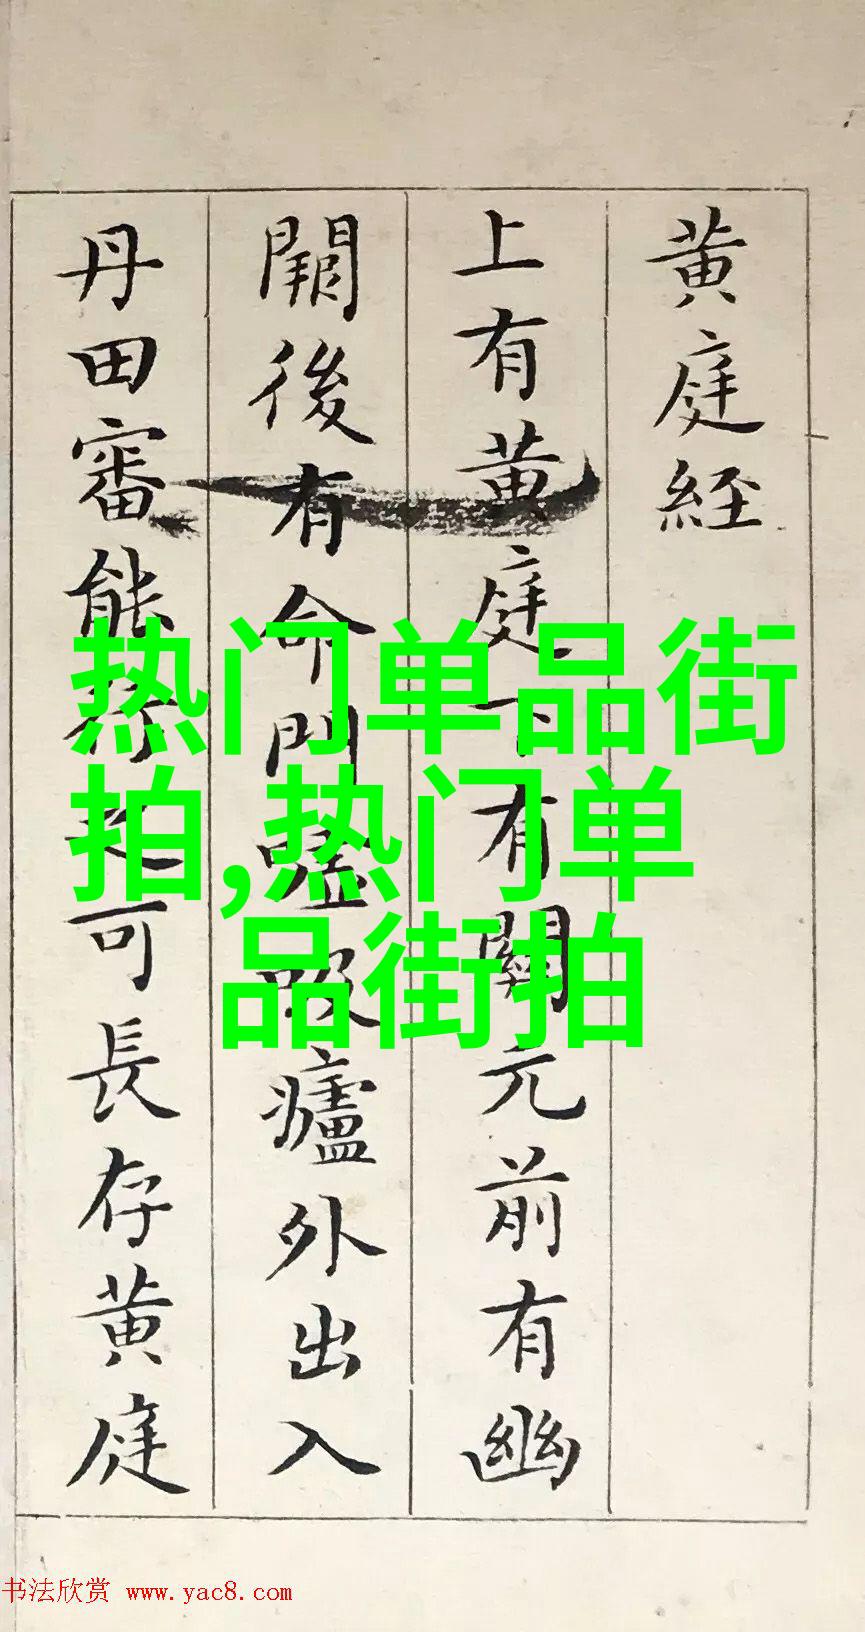 黄庭経
上有黄庭下有關元前有幽
闕後有命門噓吸廬外出入
丹田審能行之可長存黄庭
热门单品街
拍,热门单
品街拍
书法欣赏 www.yac8.com